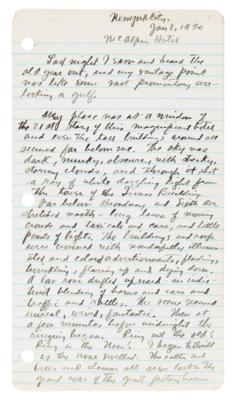 New York City.
Jan 1, 1930
McAlpin Hotel
Last night I saw and heard the
old year out, and my vantage point
was like some vast promontory over-
looking a gulf.
My place was at a window of
the 21st story of this magnificent hotel
and even the tall buildings around me
seemed far below me. The sky was
dark, murky, obscure, with dusky,
stormy clouds, and through it shot
a ray of white light from
the tower of the Times Building.
Far below Broadway and Sixth Ave
stretched north - long lanes of moving
crowds and taxicabs and cars, and little
points of lights. The buildings and roofs
were covered with illumin-
ated and colored advertisements, flashing,
twinkling, flaring up and dying down.
A low roar drifted upward - an inde-
finite blending of horns and cars and
traffic and rattles. The scene seemed
unreal, weird, fantastic. Then at
a few minutes before midnight the
ringing began. Ring out the old!
Ring in the New! I began to thrill
as the roar swelled. The rattles and
bells and clamor all were lost in the
grand roar of the great factory horns